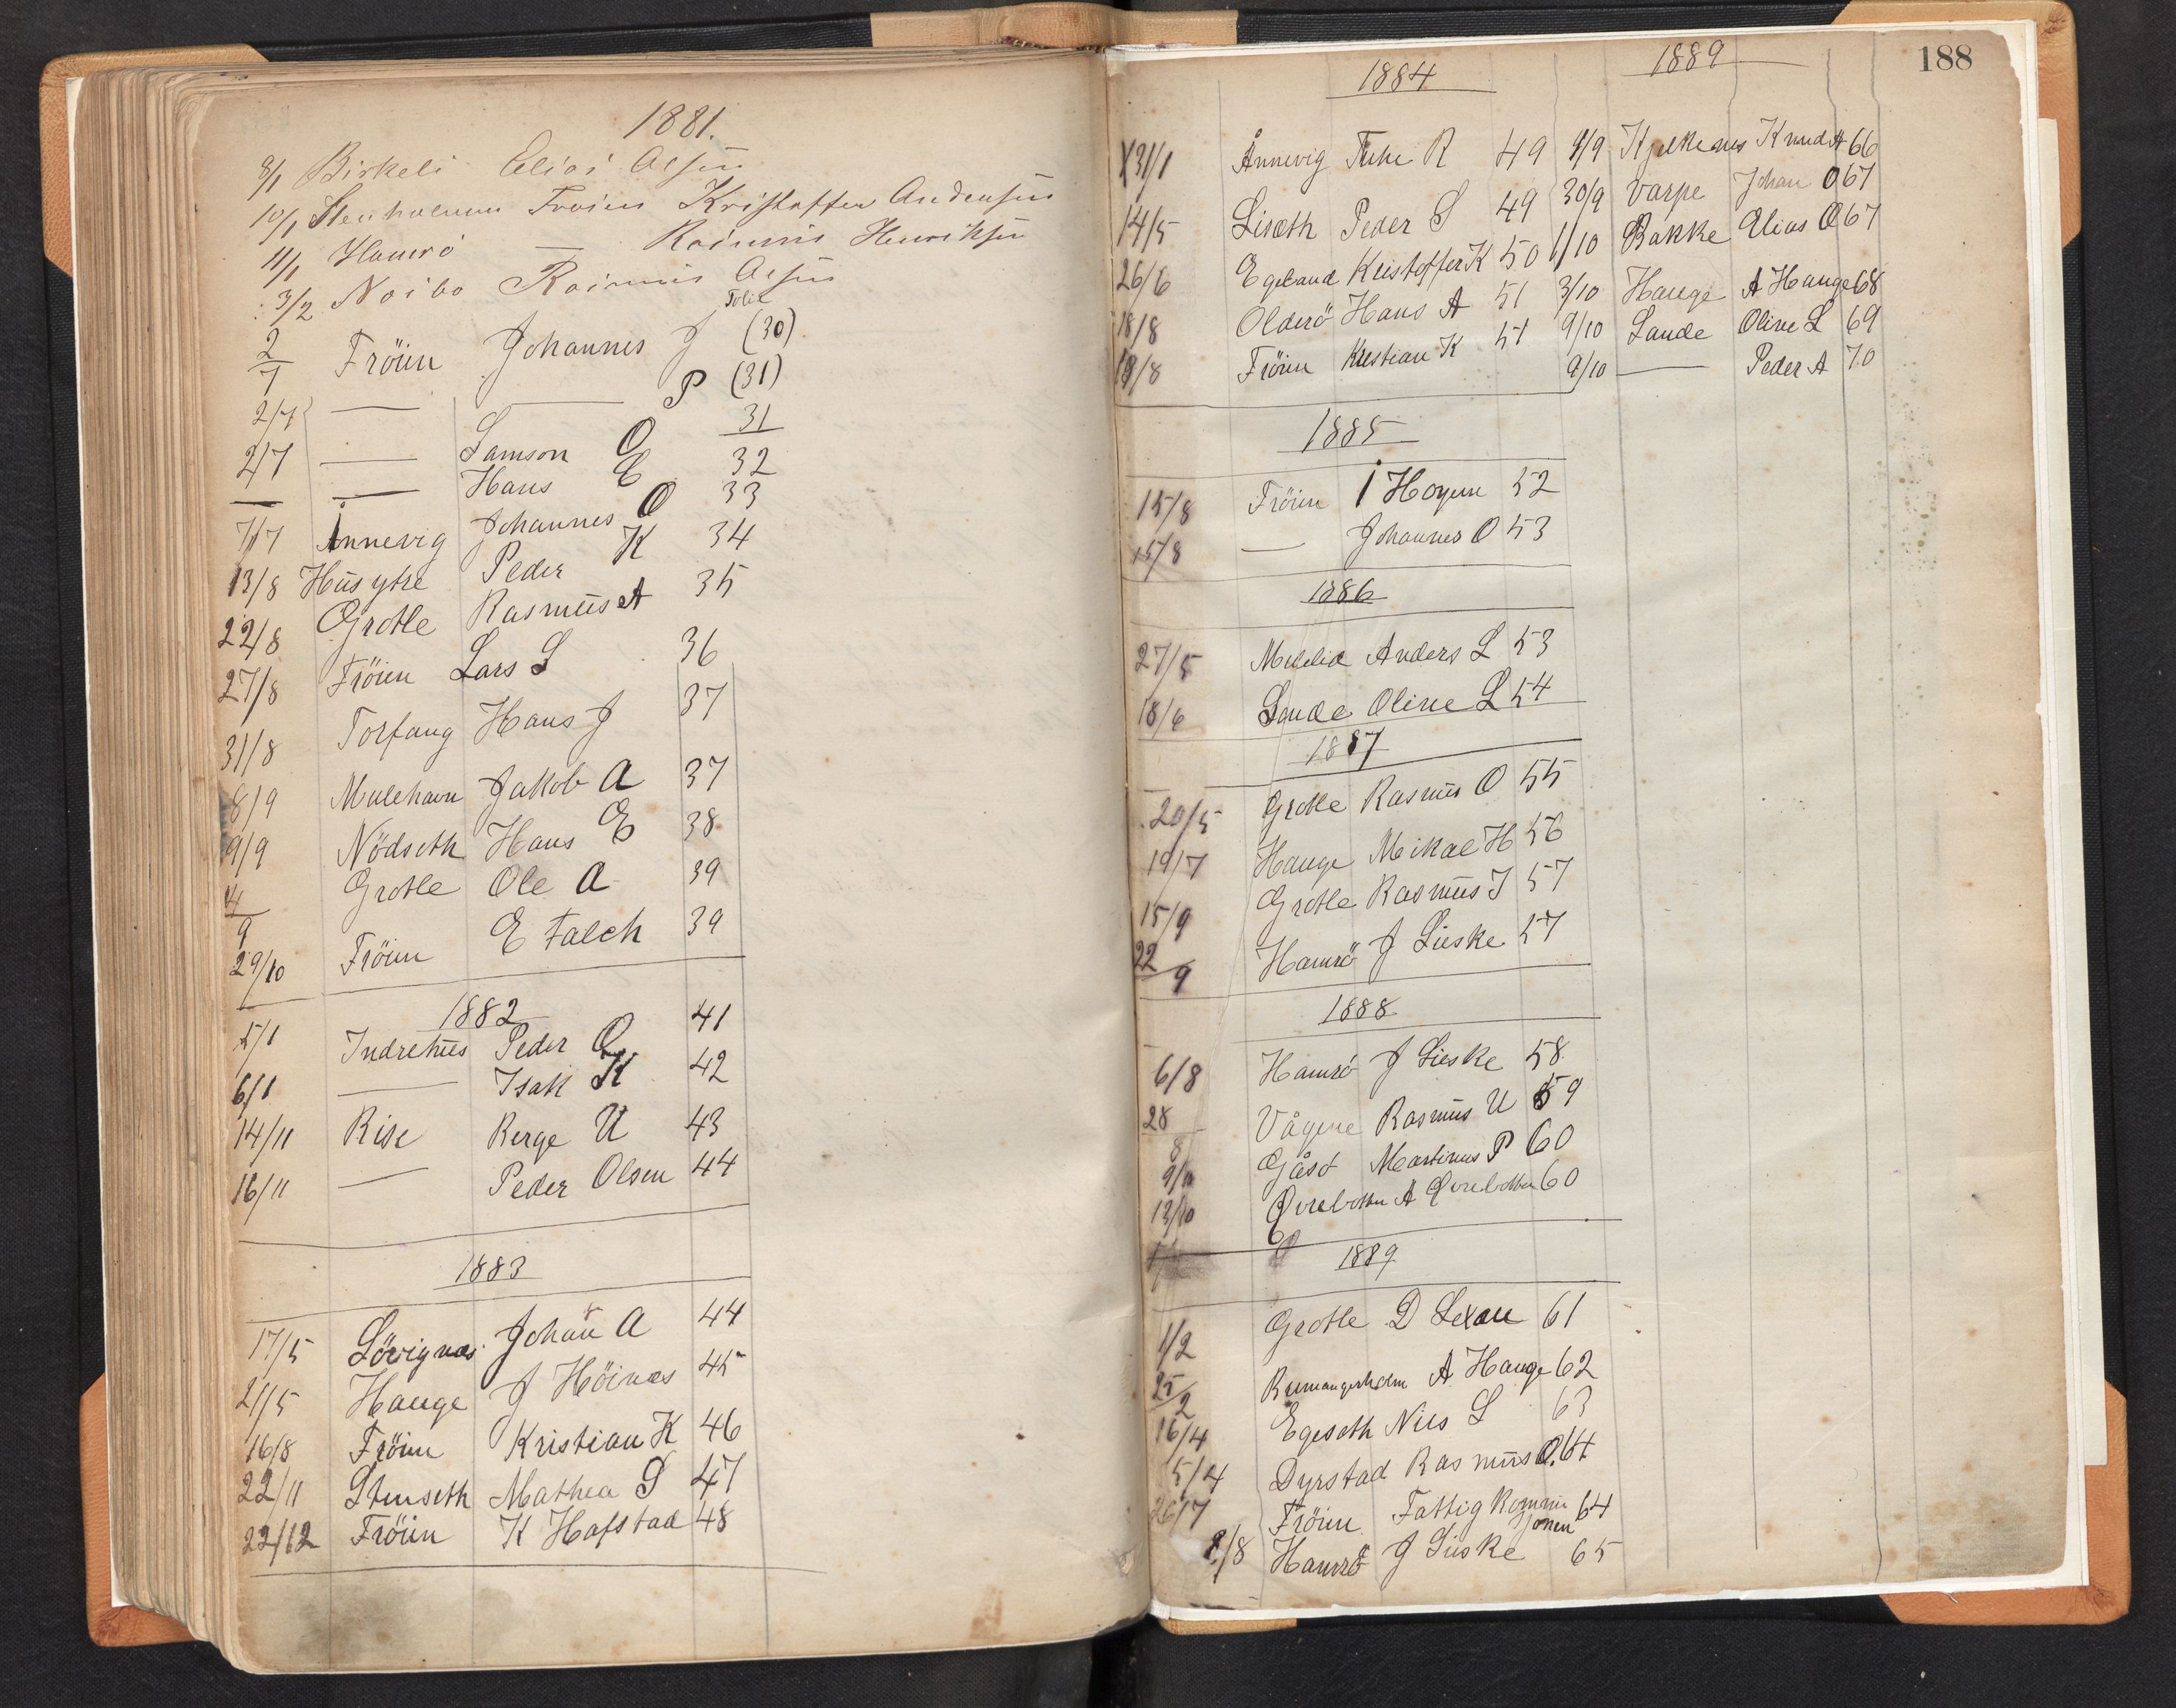 1881.
8/1 Birkeli Elias Olsen
10/1 Stenholmen Froien Kristoffer Andersen
11/1 Hamrö — Rasmus Henriksen
3/2 Noibo Rasmus Olsen
Folie
2/7 Fröien Johannes J (30)
2/7 — — P (31)
2/7 — Samson O 31
— — Hans E 32
7/7 Ånnevig Johannes O 33
13/8 Husytre Peder K 34
22/8 Grotle Rasmus A 35
27/8 Fröien Lars S 36
31/8 Torfang Hans J 37
8/9 Mulehavn Jakob A 37
9/9 Nödseth Hans E 38
4/9 Grotle Ole A 39
29/10 Fröien E Falch 39
1882
5/1 Indrehus Peder O 41
6/1 — Isak K 42
14/11 Rise Berge U 43
16/11 — Peder Olsen 44
1883
17/5 Lövignæs Johan A 44
21/5 Hauge J Höinæs 45
16/8 Fröien Kristian K 46
22/11 Stenseth Mathea S 47
22/12 Fröien K Hafstad 48
188
1884
X31/1 Ånnevig R 49
14/5 Liseth Peder S 49
26/6 Egeland Kristoffer K 50
18/8 Olderö Hans A 51
18/8 Fröien Kristian K 51
1885
15/8 Fröien I Hoyem 52
15/8 — Johannes O 53
1886
27/5 Mulelid Anders L 53
18/6 Sande Oline L 54
1887
20/5 Grotle Rasmus O 55
19/7 Hauge Mikal H 56
15/9 Grotle Rasmus I 57
22/9 Hamrö J Liaske 57
1888
6/8 Hamrö J Liaske 58
28/8 Vågene Rasmus U 59
9/10 Gåsö Martinus P 60
13/10 Qvrebotten A Qvrebotten 60
1889
1/2 Grotle D Lexau 61
25/2 Rumangerholm A Hauge 62
16/4 Egeseth Nils S 63
5/4 Dyrstad Rasmus O. 64
26/7 Fröien Fattig Kommisjonen 64
8/8 Hamrö J Liaske 65
1889
9/9 Kjelkenes Knud A 66
30/9 Varpe Johan O 67
1/10 Bakke Elias O 67
3/10 Hauge A Hauge 68
9/10 Sande Oline L 69
9/10 — Peder A 70